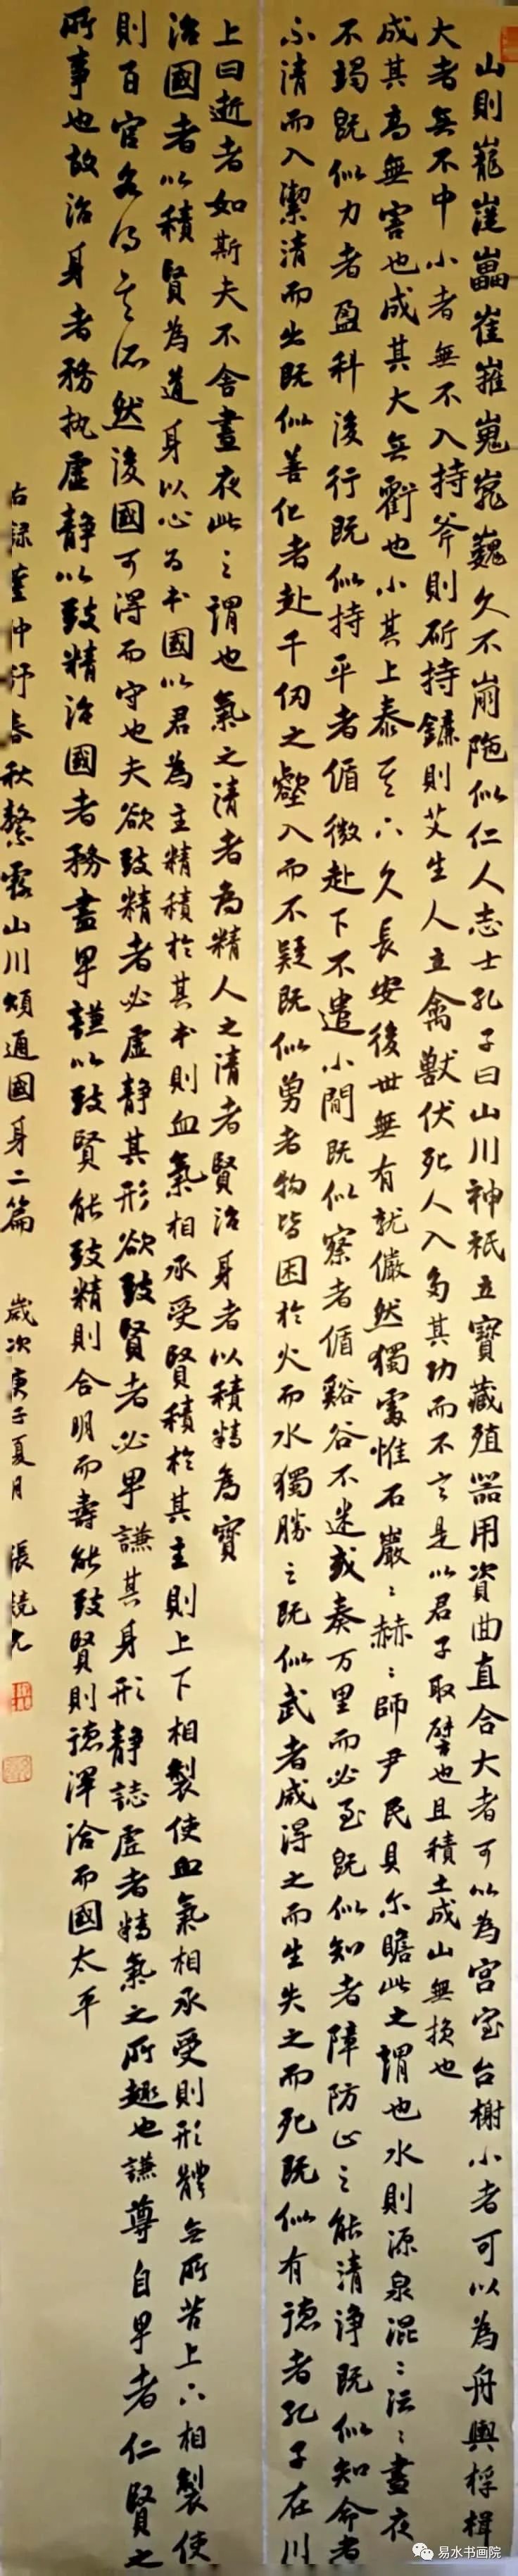 山則巃嵸㠥崔嶊嵬嶵巍久不崩陁似仁人志士孔子曰山川神祇立寶藏殖器用資曲直合大者可以為宮室台榭小者可以為舟輿桴楫
大者無不中小者無不入持斧則斫持鐮則艾生人立禽獸伏死人入多其功而不言是以君子取譬也且積土成山無損也
成其高無害也成其大無虧也小其上泰其下久長安後世無有就儼然獨處惟石巖〻赫〻師尹民具尔瞻此之謂也水則源泉混〻沄〻晝夜
不竭既似力者盈科後行既似持平者循微赴下不遺小間既似察者循谿谷不迷或奏万里而必至既似知者障防止之能清淨既似知命者
不清而入潔清而出既似善化者赴千仞之壑入而不疑既似勇者物皆困於火而水獨勝之既似武者咸得之而生失之而死既似有德者孔子在川
上曰逝者如斯夫不舍晝夜此之謂也氣之清者為精人之清者賢治身者以積精為寶
治國者以積賢為道身以心為本國以君為主精積於其本則血氣相承受賢積於其主則上下相製使血氣相承受則形體無所苦上下相製使
則百官各得其所然後國可得而守也夫欲致精者必虛靜其形欲致賢者必卑謙其身形靜誌虛者精氣之所趣也謙尊自卑者仁賢之
所事也故治身者務执虛靜以致精治國者務盡卑謙以致賢能致精則合明而壽能致賢則德澤洽而國太平
右錄董仲舒春秋繁露山川頌通國身二篇 歲次庚子夏月 張
易水书画院